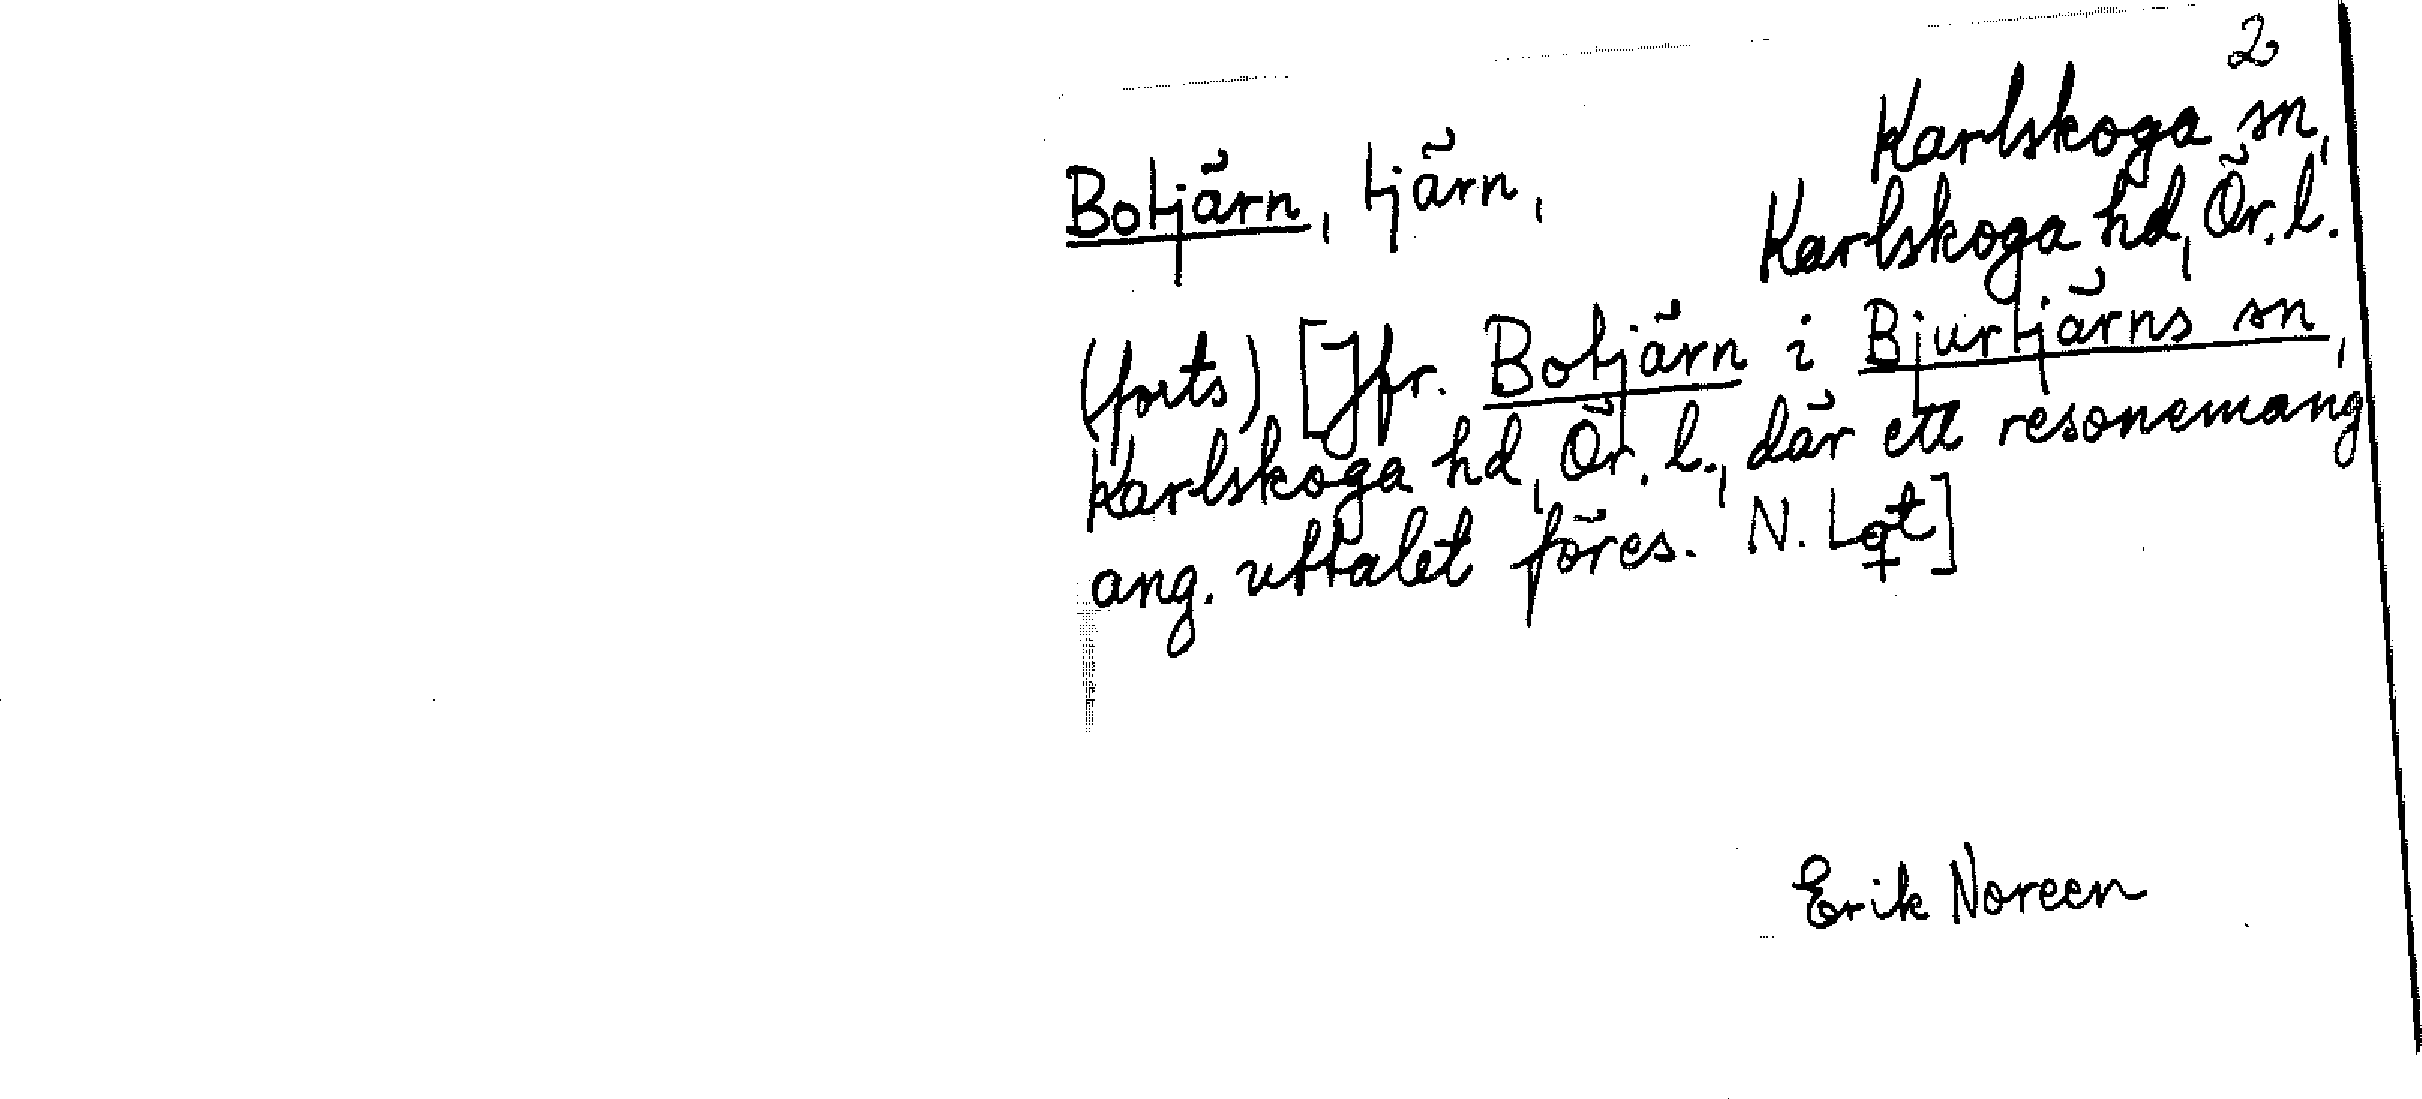 2
Karlskoga sn,
Botjärn, tjärn,
Karlskoga hd, Ör. l.
(forts) [Jfr. Botjärn i Bjurtjärns sn,
Karlskoga hd, Ör. l., där ett resonemang
ang. uttalet föres. N.
Erik Noreen